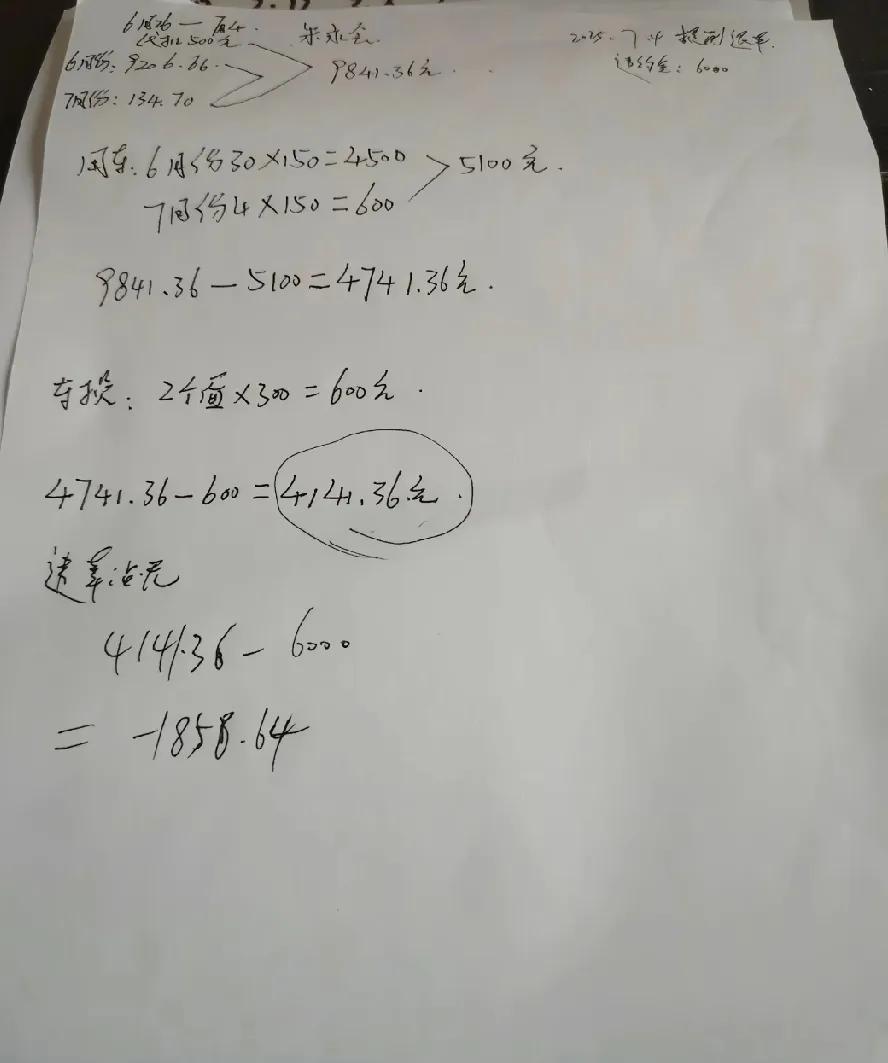 6月26一7月4.
代扣500元
6月份: 9206.66.
7月份: 134.70
朱永会
9841.36元.
2025.7.4 提到退车.
违约金: 6000
用车: 6月份30×150=4500
7月份4×150=600
5100元.
9841.36-5100=4741.36元.
车损: 2个面×300=600元.
4741.36-600=4141.36元.
4141.36-6000
= -1858.64